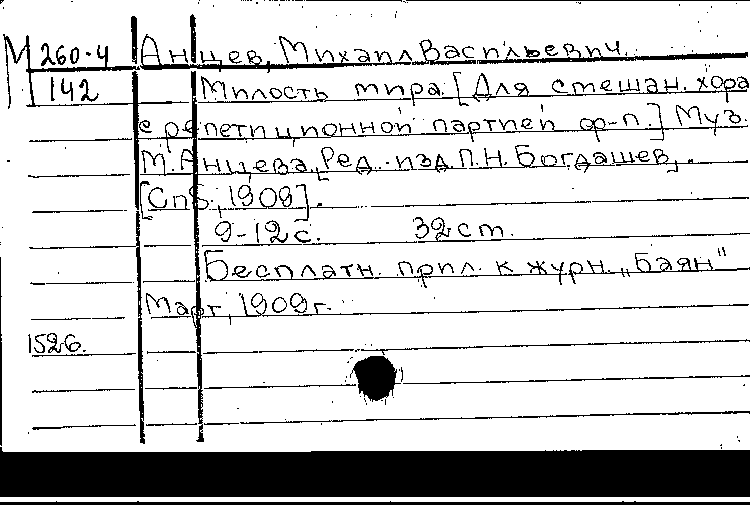 М 260-4 Анцев, Михаил Васильевич.
142 Милость мира. [Для смешан. хора
с репетиционной партией ф-п.] Муз.
М. Анцева, Ред.-изд. П.Н. Богдашев,
[Спб., 1909].
9-12 с. 32 cm.
Бесплатн. прил. к журн. „Баян"
Март, 1909 г.
1526.